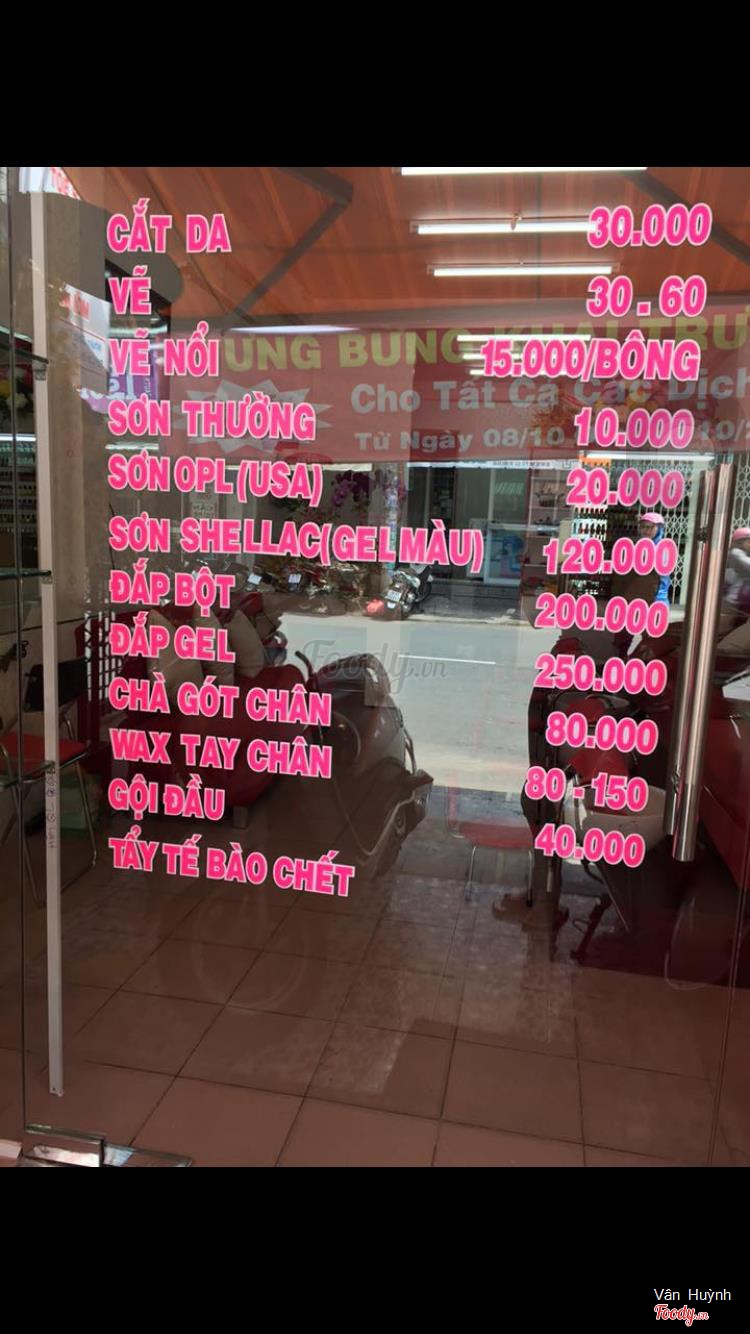 CẮT DA 30.000
VẼ 30.60
VẼ NỔI 15.000/BÔNG
SƠN THƯỜNG 10.000
SƠN OPL(USA) 20.000
SƠN SHELLAC(GEL MÀU) 120.000
ĐẮP BỘT 200.000
ĐẮP GEL 250.000
CHÀ GÓT CHÂN 80.000
WAX TAY CHÂN 80-150
GỘI ĐẦU 40.000
TẨY TẾ BÀO CHẾT
BỪNG KHAI
Cho Tất Cả Các Dịch
Từ Ngày 08/10
Foody.vn
Vân Huỳnh
Foody.vn